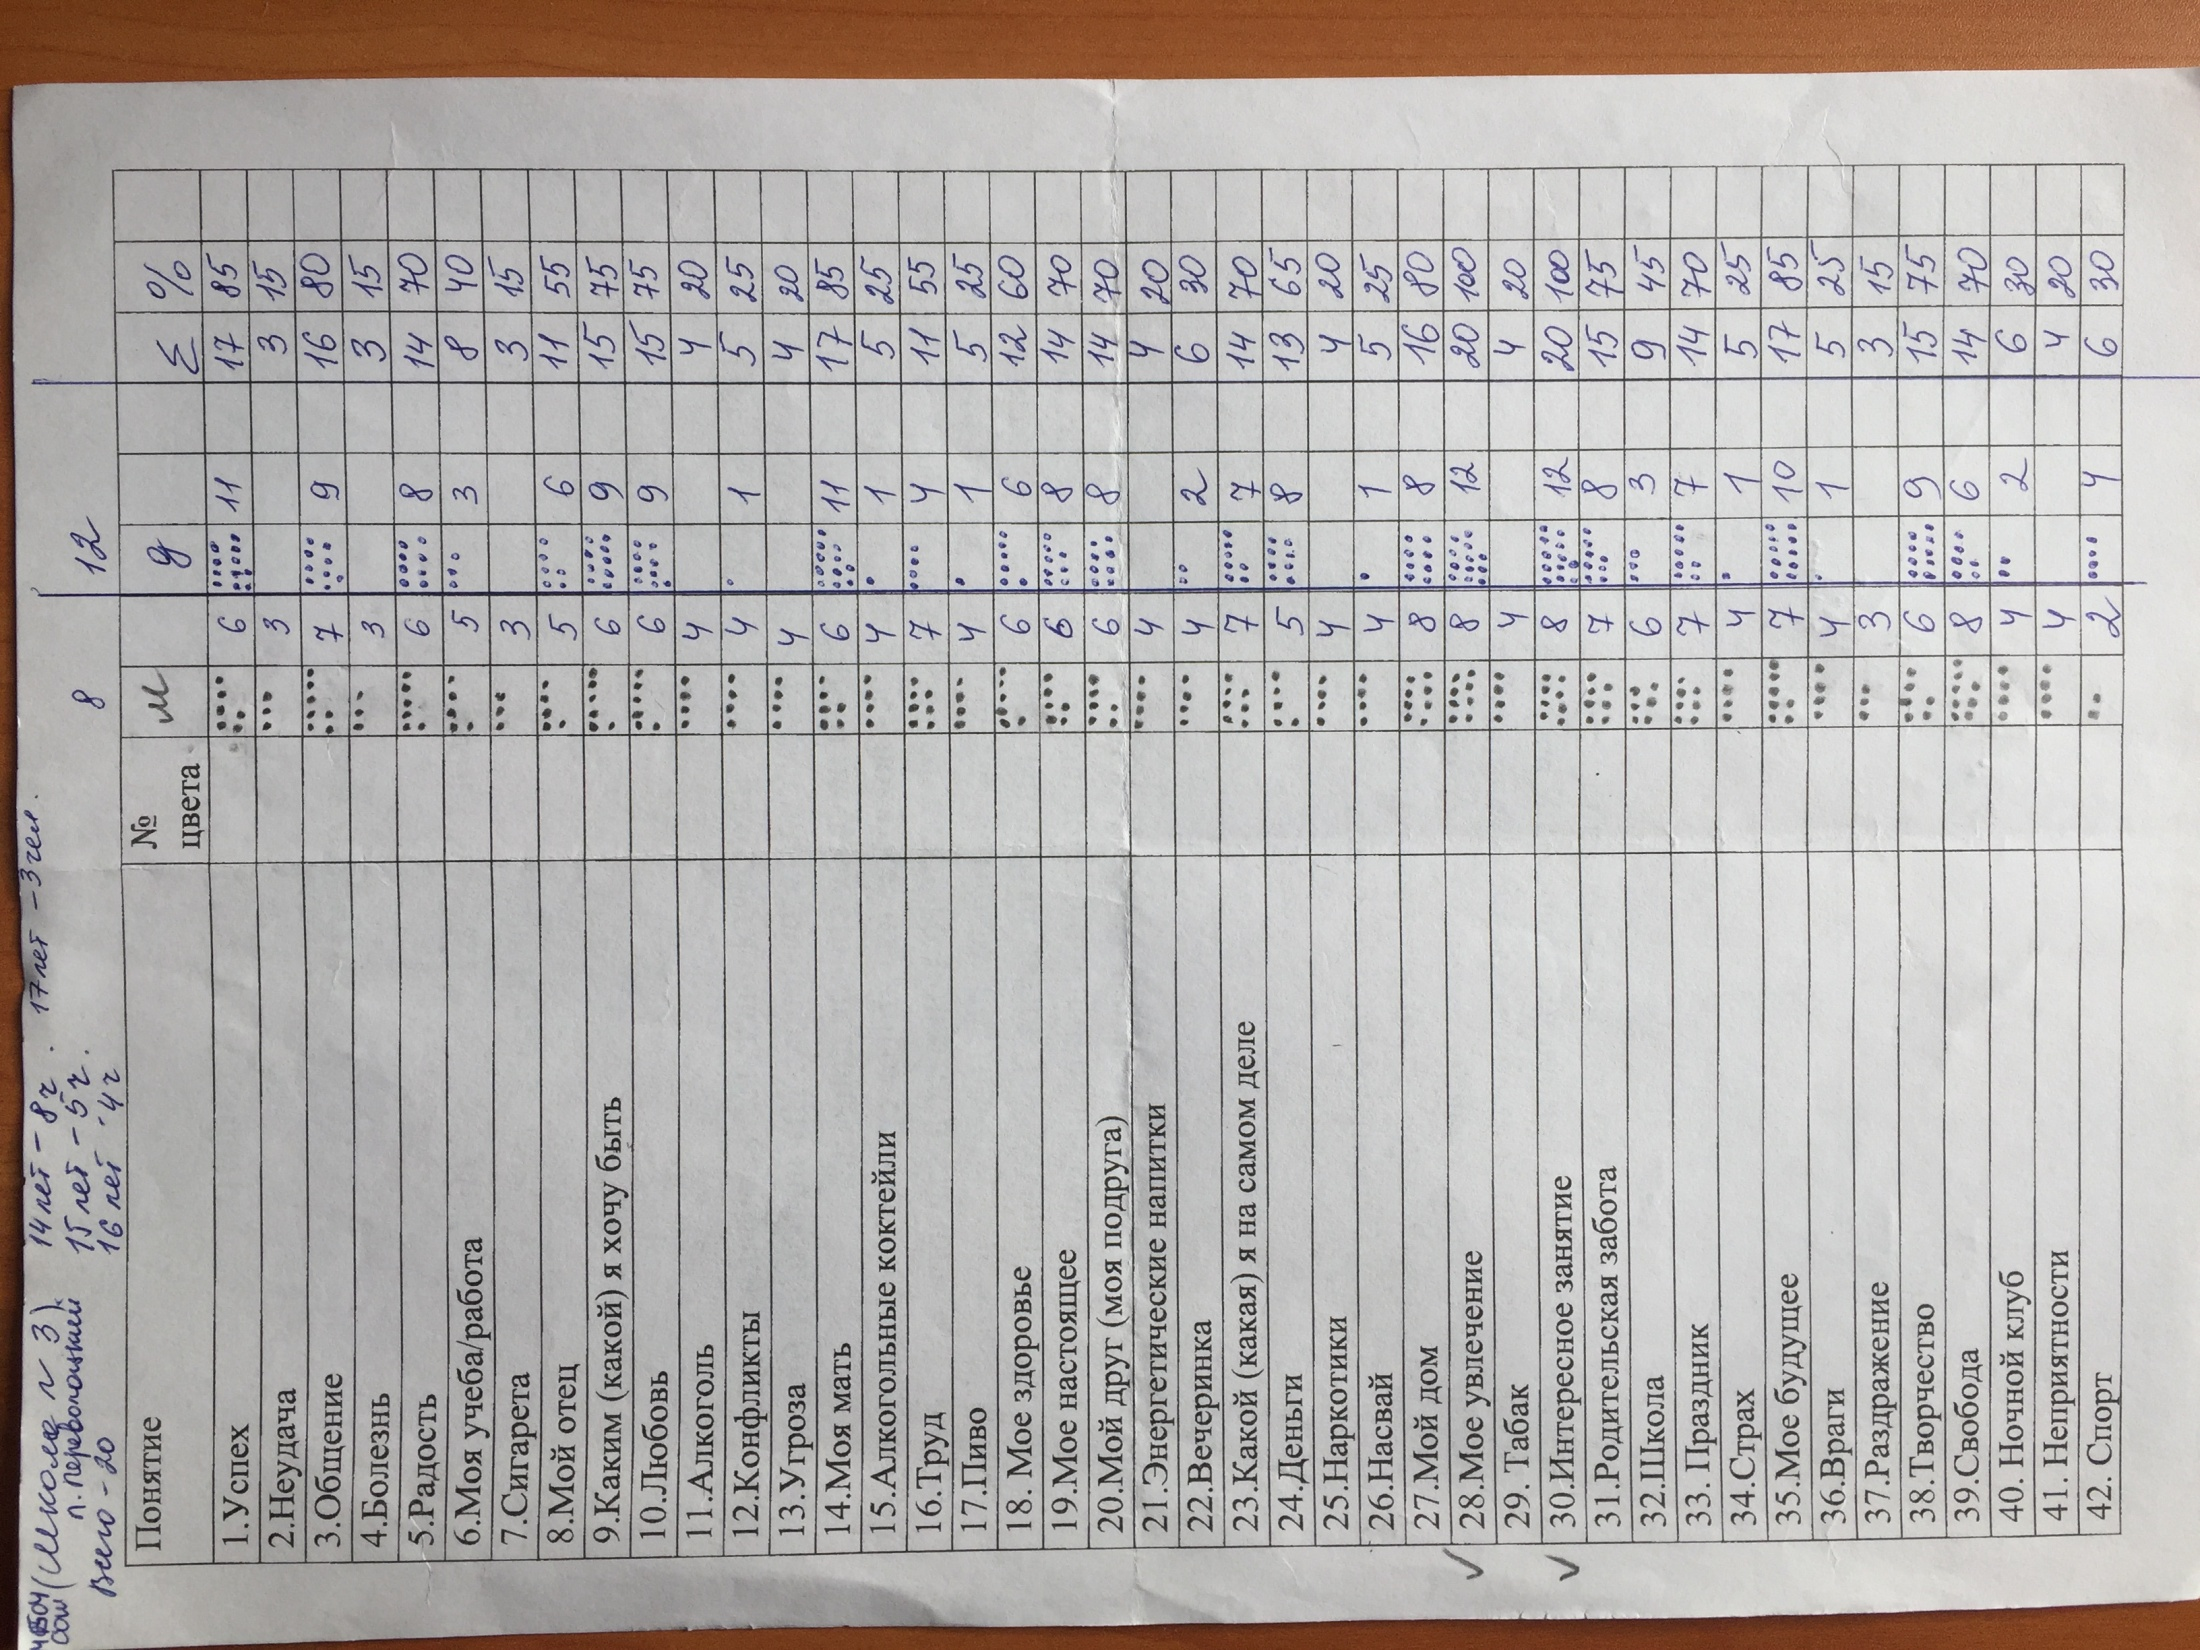 (Школа №3) 14 лет - 8 ч. 17 лет - 3 чел.
СОШ п. Первомайский 15 лет - 5 ч.
Всего - 20 16 лет - 4 ч
8 12
Понятие № цвета М Д Σ %
1.Успех 6 11 17 85
2.Неудача 3 3 15
3.Общение 7 9 16 80
4.Болезнь 3 3 15
5.Радость 6 8 14 70
6.Моя учеба/работа 5 3 8 40
7.Сигарета 3 3 15
8.Мой отец 5 6 11 55
9.Каким (какой) я хочу быть 6 9 15 75
10.Любовь 6 9 15 75
11.Алкоголь 4 4 20
12.Конфликты 4 1 5 25
13.Угроза 4 4 20
14.Моя мать 6 11 17 85
15.Алкогольные коктейли 4 1 5 25
16.Труд 7 4 11 55
17.Пиво 4 1 5 25
18. Мое здоровье 6 6 12 60
19.Мое настоящее 6 8 14 70
20.Мой друг (моя подруга) 6 8 14 70
21.Энергетические напитки 4 4 20
22.Вечеринка 4 2 6 30
23.Какой (какая) я на самом деле 7 7 14 70
24.Деньги 5 8 13 65
25.Наркотики 4 4 20
26.Насвай 4 1 5 25
27.Мой дом 8 8 16 80
✓ 28.Мое увлечение 8 12 20 100
29. Табак 4 4 20
✓ 30.Интересное занятие 8 12 20 100
31.Родительская забота 7 8 15 75
32.Школа 6 3 9 45
33. Праздник 7 7 14 70
34.Страх 4 1 5 25
35.Мое будущее 7 10 17 85
36.Враги 4 1 5 25
37.Раздражение 3 3 15
38.Творчество 6 9 15 75
39.Свобода 8 6 14 70
40. Ночной клуб 4 2 6 30
41. Неприятности 4 4 20
42. Спорт 2 4 6 30